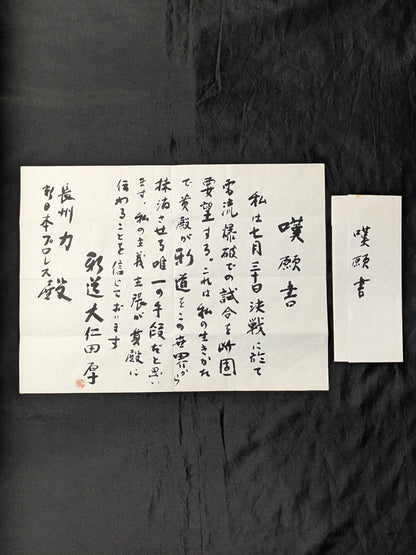 嘆願書
私は七月三十日決戦に於て
電流爆破での試合を断固
要望する。これは私の生きかた
で貴殿が邪道をこの世界から
抹消させる唯一の手段だと思い
ます。私の主義主張が貴殿に
伝わることを信じております
邪道 大仁田 厚
長州 力 殿
新日本プロレス
嘆願書